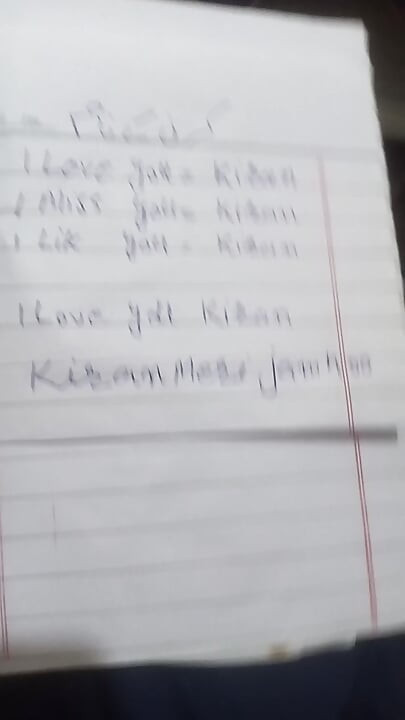 I Love you = Kiran
I Miss you = Kiran
I Lik you = Kiran
I Love you Kiran
Kiran Meri jan